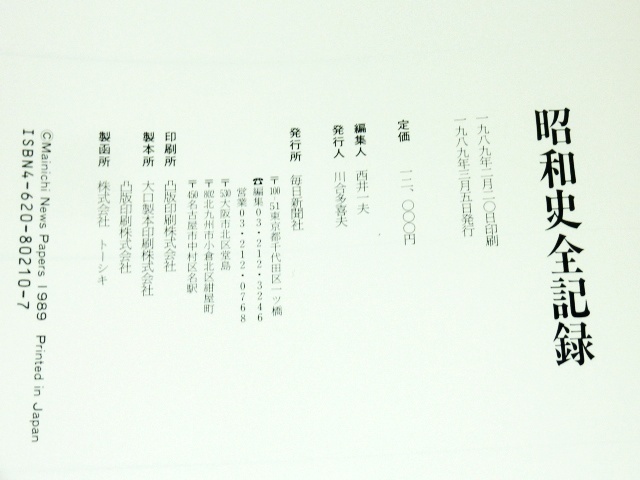 昭和史全記録
一九八九年二月二〇日印刷
一九八九年三月五日発行
定価　一二、〇〇〇円
編集人　西井一夫
発行人　川合多喜夫
発行所　毎日新聞社
〒100-51東京都千代田区一ツ橋
☎編集03・212・3246
営業03・212・0768
〒530大阪市北区堂島
〒802北九州市小倉北区紺屋町
〒450名古屋市中村区名駅
印刷所　凸版印刷株式会社
製本所　大口製本印刷株式会社
凸版印刷株式会社
製函所　株式会社　トーシキ
©Mainichi News Papers 1989 Printed in Japan
ISBN4-620-80210-7